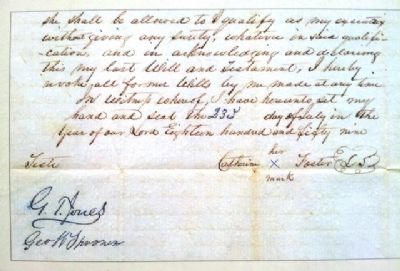 she shall be allowed to qualify as my executrix
without giving any surety, whatever in said qualifi-
cation, and in acknowledging and declaring
this my last Will and Testament, I hereby
revoke all former Wills by me made at any time
In witness whereof, I have hereunto set my
hand and seal this 23d day of July in the
Year of our Lord Eighteen hundred and fifty nine
Teste Catherine her x mark Foster
G. T. Jones
Geo W Spooner